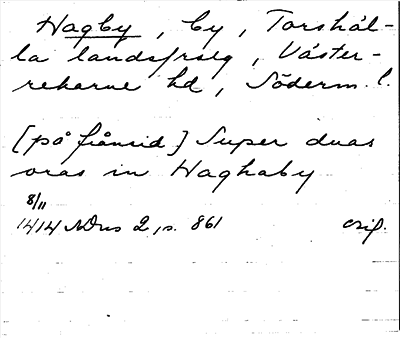 Hagby, by, Torshäl-
la landsfrslg, Väster-
rekarne hd, Söderm. l.
[på frånsid] Super duas
oras in Haghaby
8/11
1414 NDns 2, s. 861 orig.